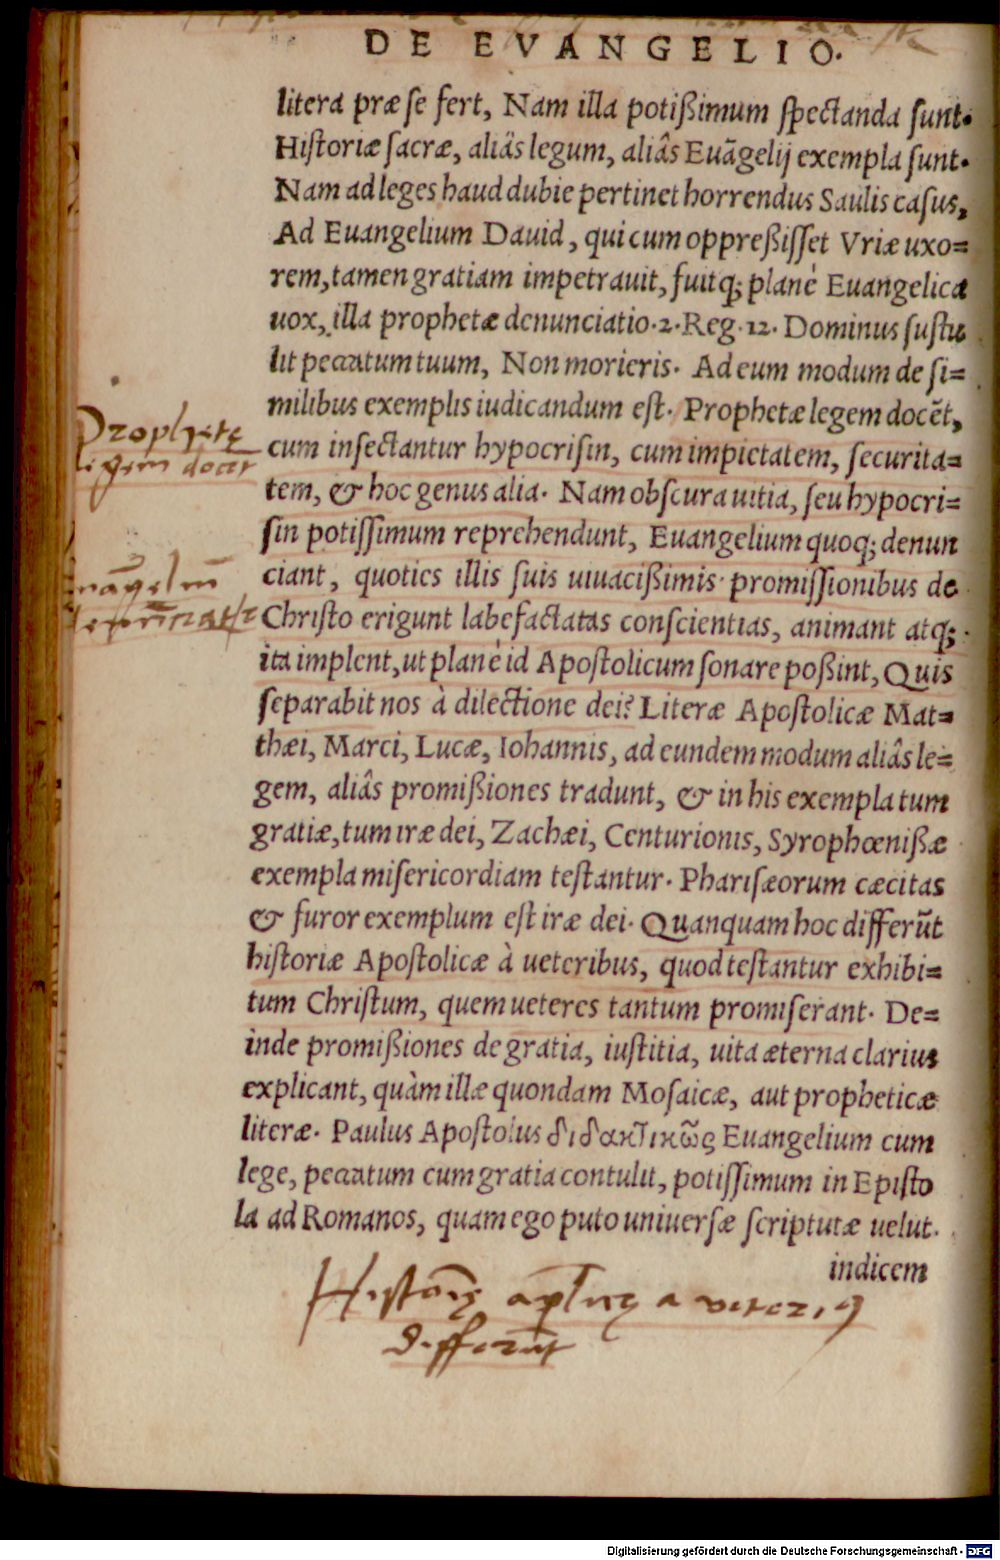 DE EVANGELIO.
litera præ se fert, Nam illa potißimum spectanda sunt.
Historiæ sacræ, aliâs legum, aliâs Euãgelij exempla sunt.
Nam ad leges haud dubie pertinet horrendus Saulis casus,
Ad Euangelium Dauid, qui cum oppreßisset Vriæ uxo=
rem, tamen gratiam impetrauit, fuitq; planè Euangelica
uox, illa prophetæ denunciatio. 2. Reg. 12. Dominus sustu
lit peccatum tuum, Non morieris. Ad eum modum de si=
milibus exemplis iudicandum est. Prophetæ legem docẽt,
cum insectantur hypocrisin, cum impietatem, securita=
tem, & hoc genus alia. Nam obscura uitia, seu hypocri=
sin potissimum reprehendunt, Euangelium quoq; denun
ciant, quoties illis suis uiuacißimis promissionibus de
Christo erigunt labefactatas conscientias, animant atq;
ita implent, ut planè id Apostolicum sonare poßint, Quis
separabit nos à dilectione dei? Literæ Apostolicæ Mat=
thæi, Marci, Lucæ, Iohannis, ad eundem modum aliâs le=
gem, aliâs promißiones tradunt, & in his exempla tum
gratiæ, tum iræ dei, Zachæi, Centurionis, Syrophœnißæ
exempla misericordiam testantur. Pharisæorum cæcitas
& furor exemplum est iræ dei. Quanquam hoc differũt
historiæ Apostolicæ à ueteribus, quod testantur exhibi=
tum Christum, quem ueteres tantum promiserant. De=
inde promißiones de gratia, iustitia, uita æterna clarius
explicant, quàm illæ quondam Mosaicæ, aut propheticæ
literæ. Paulus Apostolus διδακτικῶς Euangelium cum
lege, peccatum cum gratia contulit, potissimum in Episto
la ad Romanos, quam ego puto uniuersæ scriptutæ uelut
indicem
Prophetę
legem docēt
Historię aplicę a veterib9
differūt
Digitalisierung gefördert durch die Deutsche Forschungsgemeinschaft - DFG